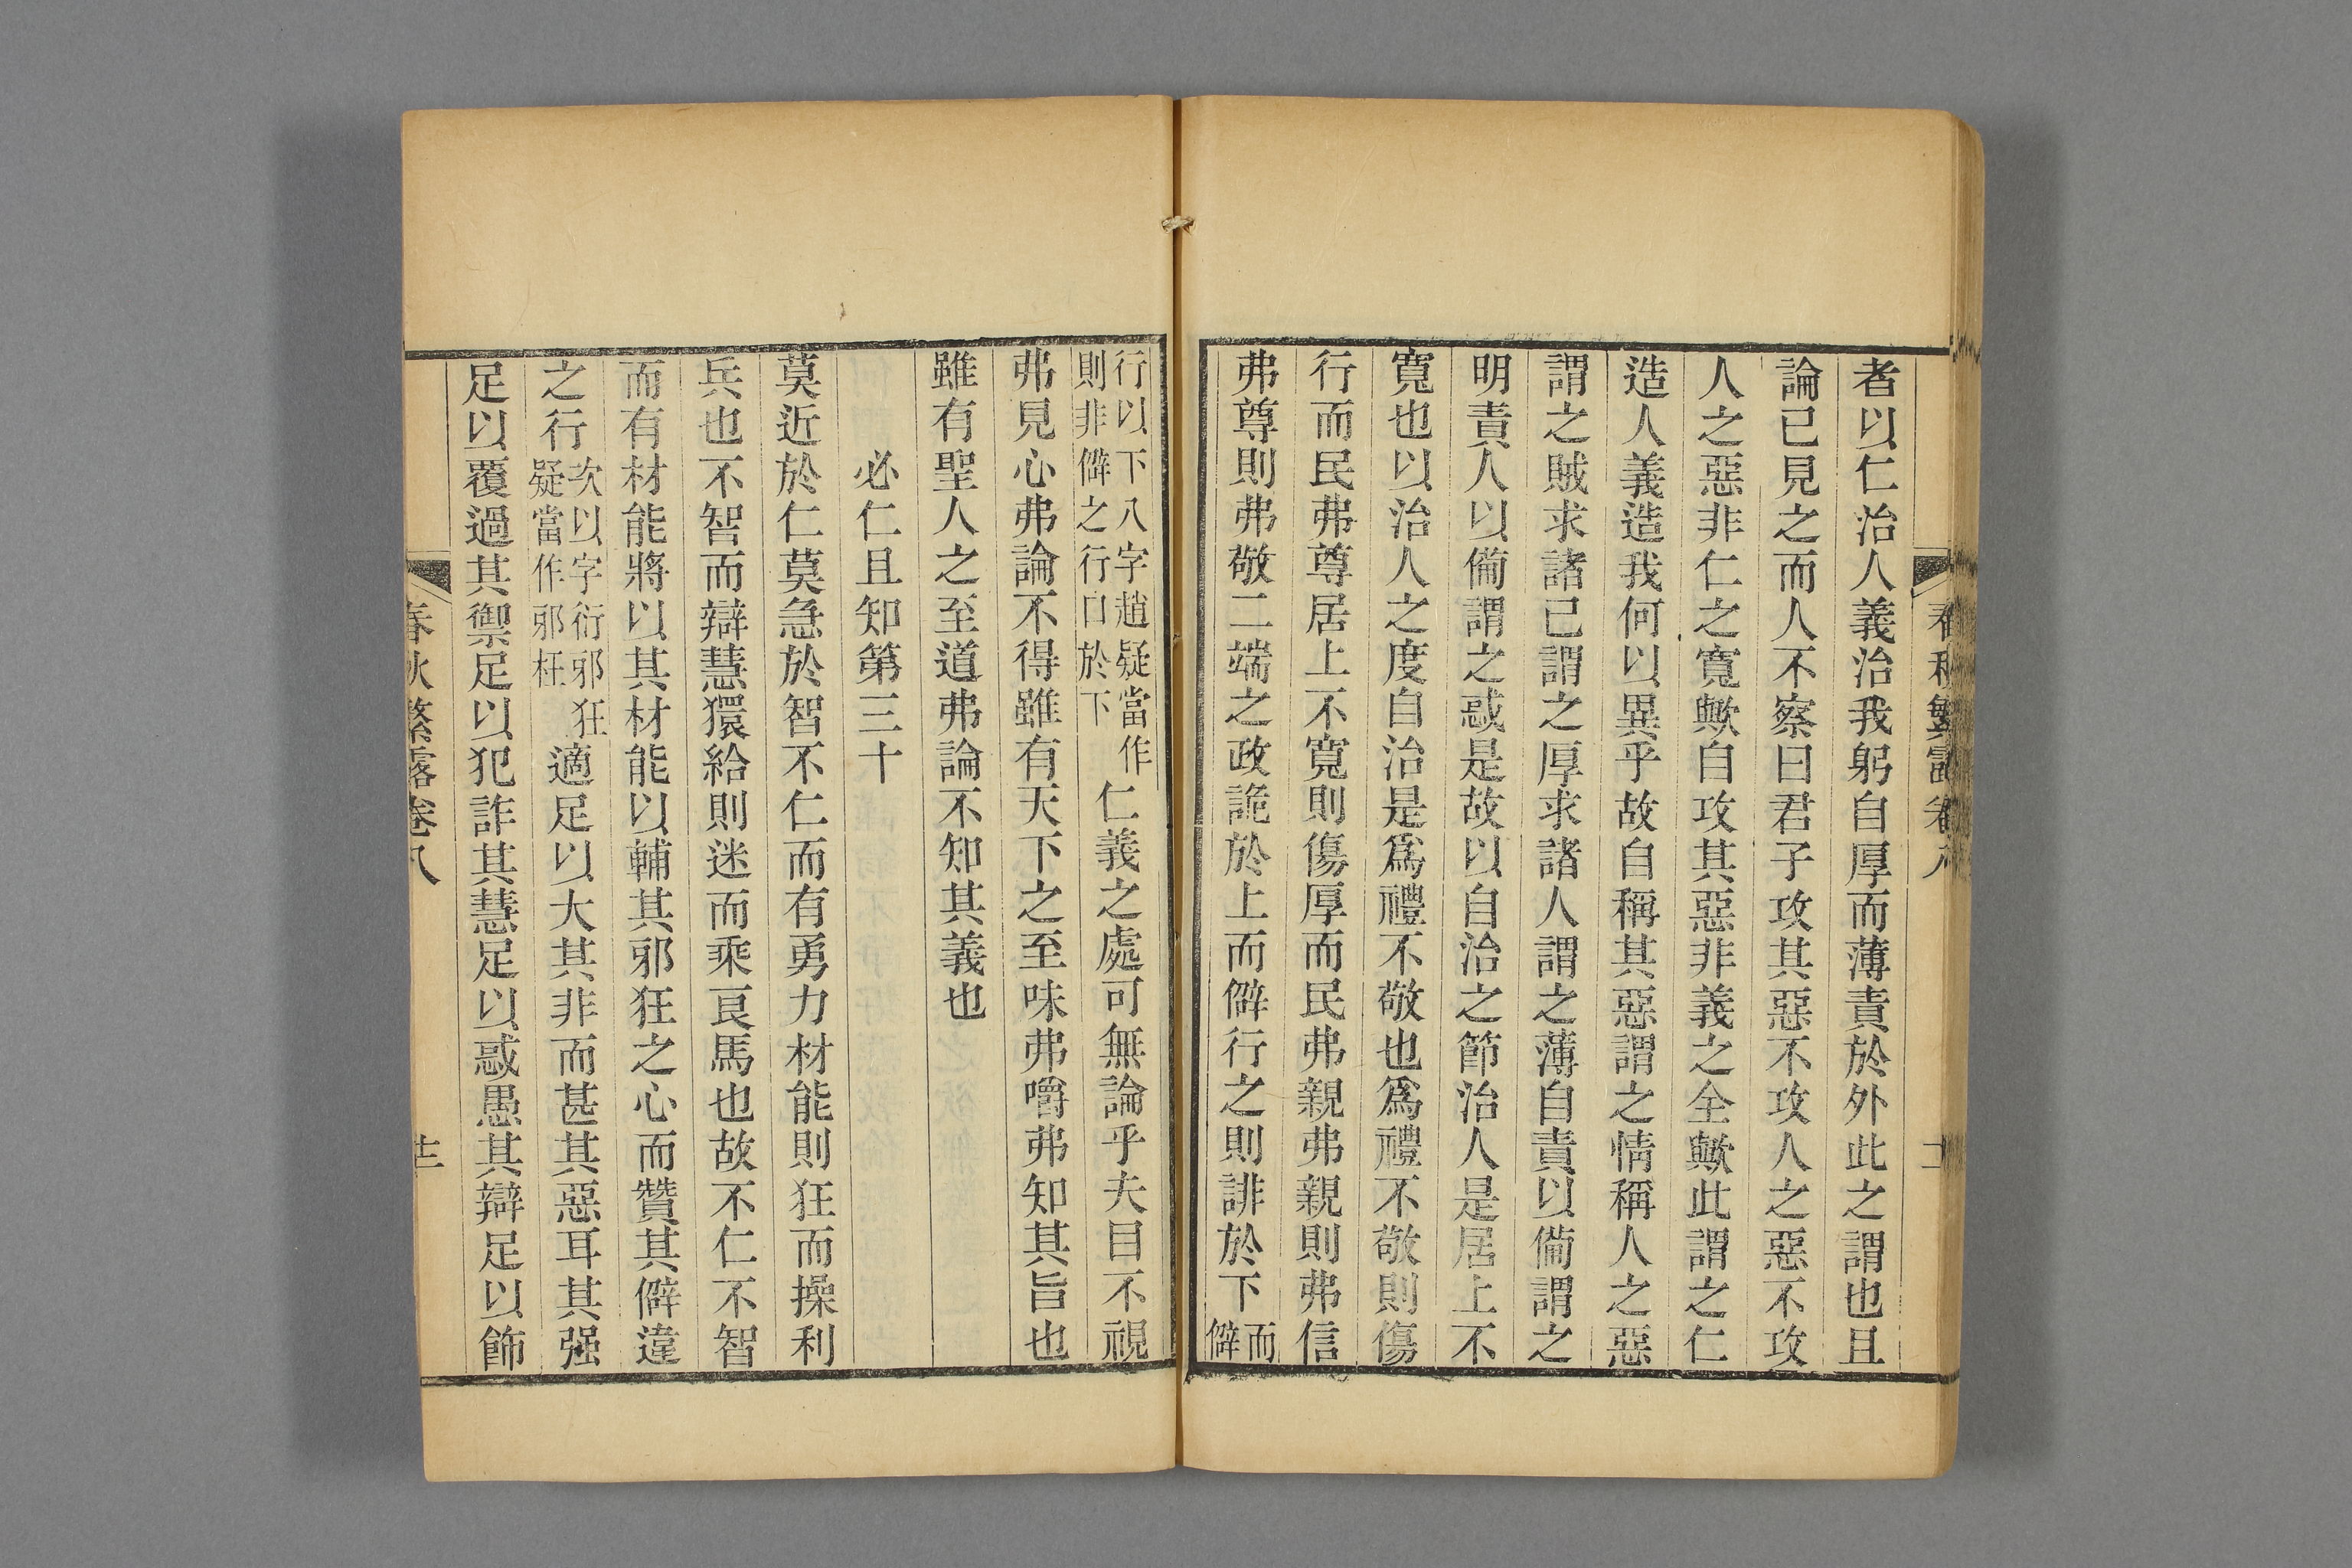 春秋繁露卷八
者以仁治人義治我躬自厚而薄責於外此之謂也且
論已見之而人不察曰君子攻其惡不攻人之惡不攻
人之惡非仁之寬歟自攻其惡非義之全歟此謂之仁
造人義造我何以異乎故自稱其惡謂之情稱人之惡
謂之賊求諸己謂之厚求諸人謂之薄自責以備謂之
明責人以備謂之惑是故以自治之節治人是居上不
寬也以治人之度自治是爲禮不敬也爲禮不敬則傷
行而民弗尊居上不寬則傷厚而民弗親弗親則弗信
弗尊則弗敬二端之政詭於上而僻行之則誹於下而僻
行以下八字趙疑當作則非僻之行口於下仁義之處可無論乎夫目不視
弗見心弗論不得雖有天下之至味弗嚼弗知其旨也
雖有聖人之至道弗論不知其義也
必仁且知第三十
莫近於仁莫急於智不仁而有勇力材能則狂而操利
兵也不智而辯慧獧給則迷而乘良馬也故不仁不智
而有材能將以其材能以輔其邪狂之心而贊其僻違
之行次以字衍邪狂疑當作邪枉適足以大其非而甚其惡耳其强
足以覆過其禦足以犯詐其慧足以惑愚其辯足以飾
春秋繁露卷八